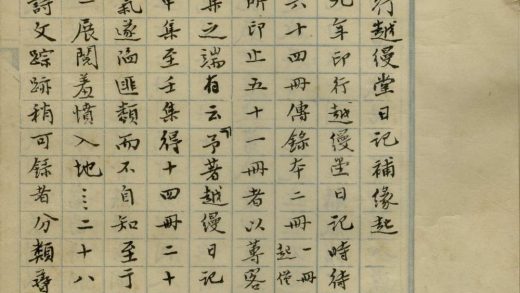 行越縵堂日記補緣起
九年印行越縵堂日記時待
六十四冊傳錄本二冊一冊起僅
所印止五十一冊者以蓴客
集之端有云「予著越縵日記
甲集至壬集得十四冊二十
氣遂陷匪類而不自知至于
一展閱羞憤入地……二十八
詩文踪跡稍可錄者分類尋